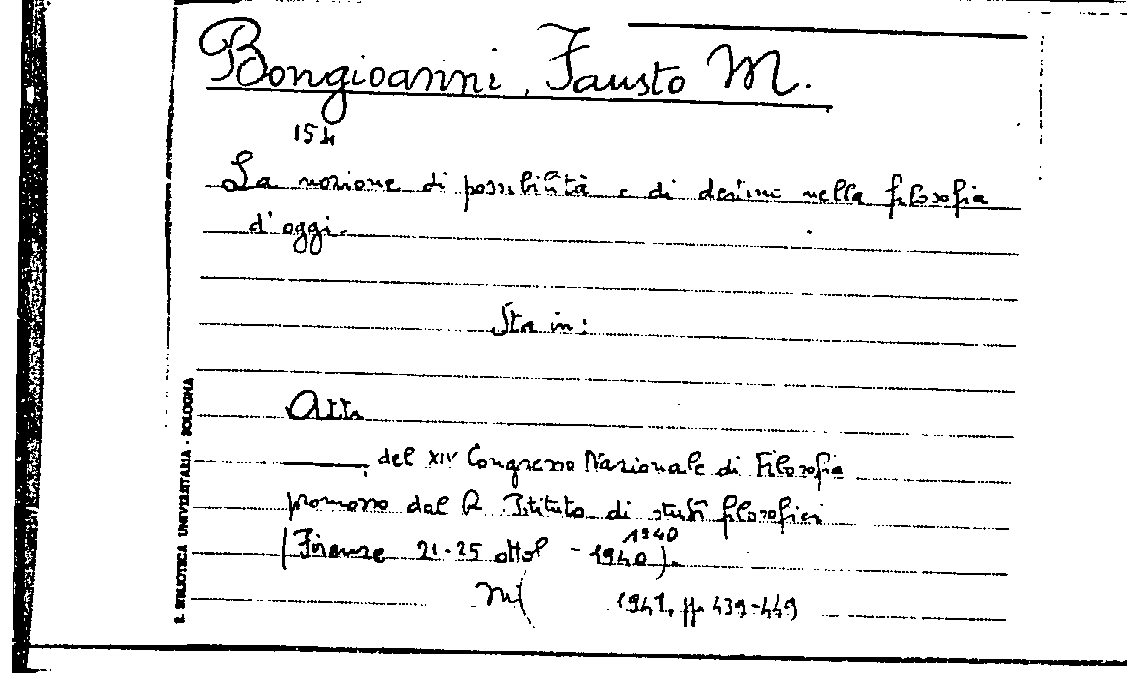 Bongioanni, Fausto M.
154
La nozione di possibilità e di destino nella filosofia
d'oggi.
Sta in:
Atti
———, del XIV Congresso Nazionale di Filosofia
promosso dal R. Istituto di studi filosofici
1940
(Firenze 21-25 ottob - 1940).
1941, pp. 439-449
R. BIBLIOTECA UNIVERSITARIA - BOLOGNA